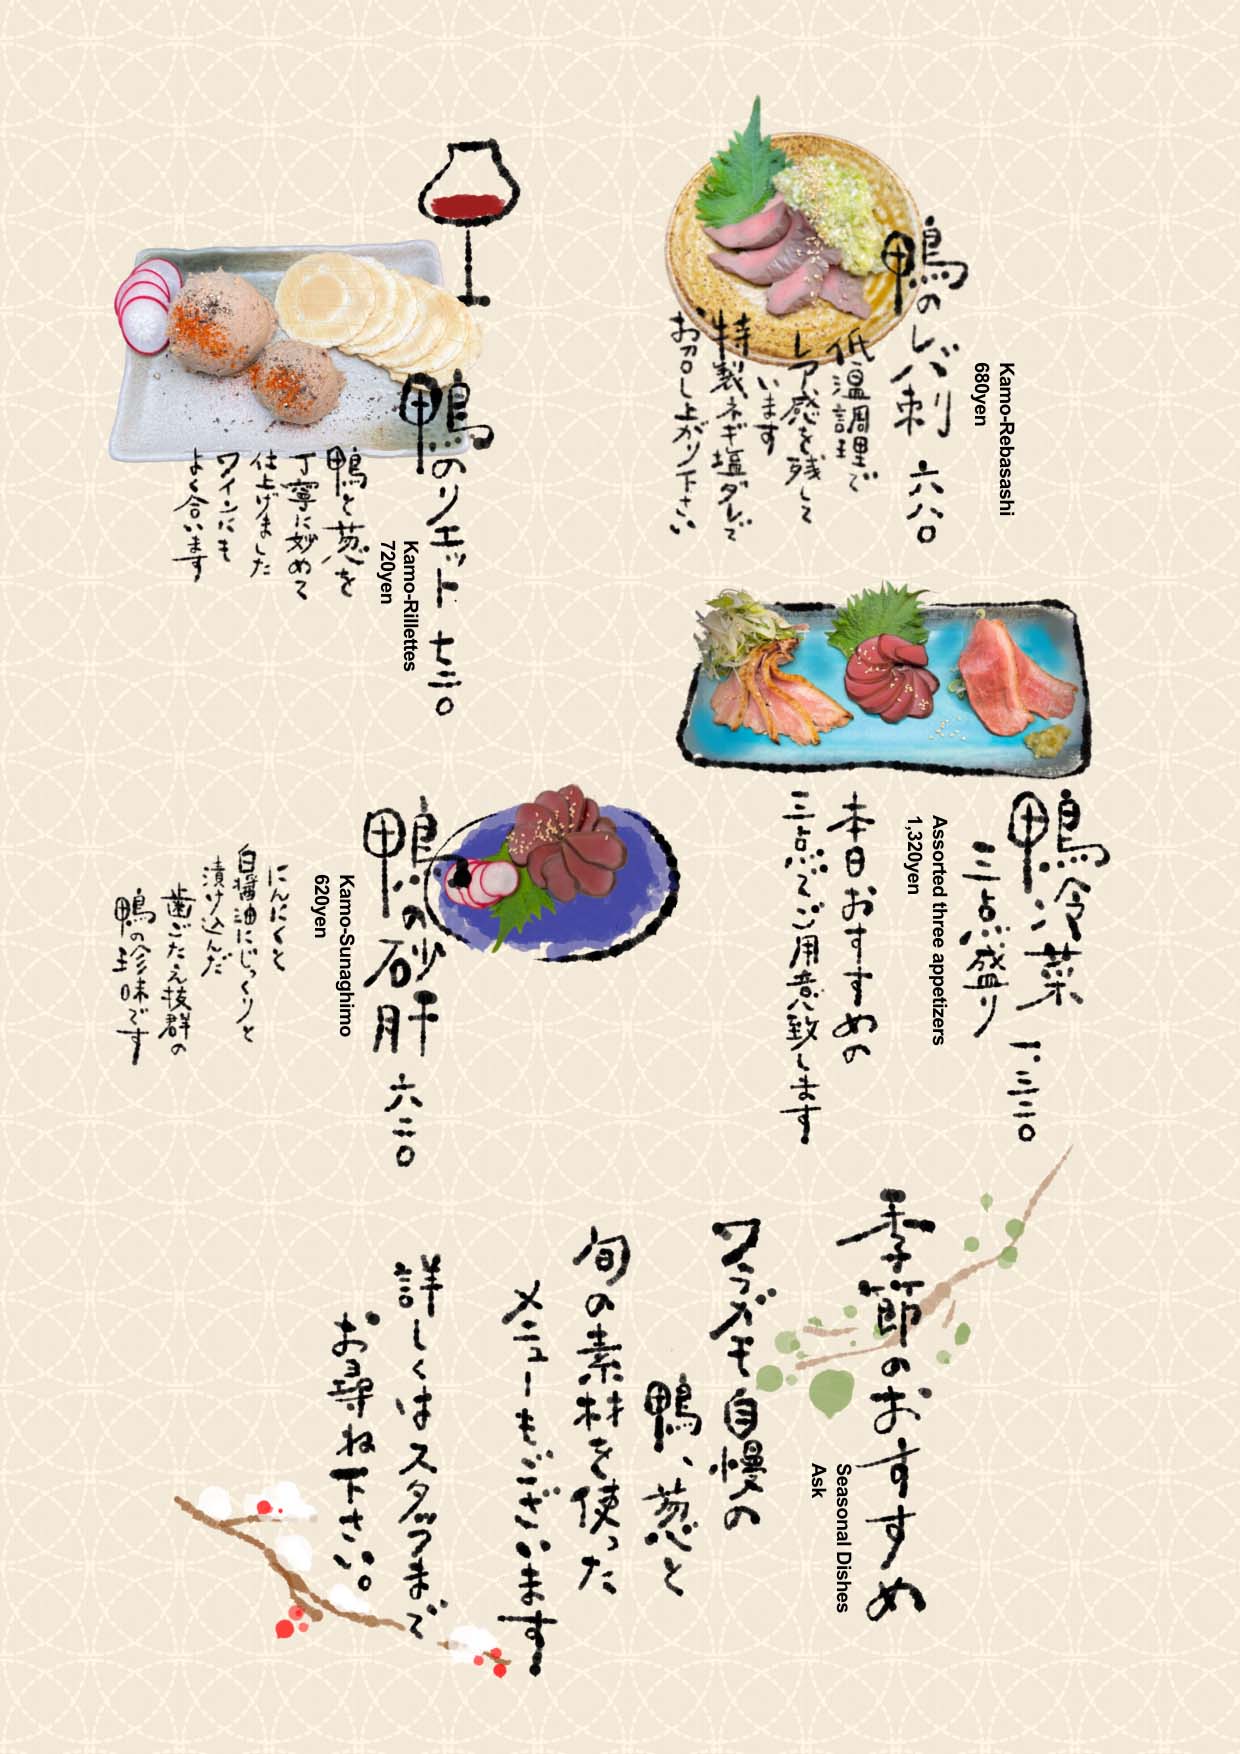 鴨のレバ刺 六八〇
Kamo-Rebasashi
680yen
低温調理で
レア感を残して
います
特製ネギ塩ダレで
お召し上がり下さい
鴨のリエット 七二〇
Kamo-Rillettes
720yen
鴨と葱を
丁寧に炒めて
仕上げました
ワインにも
よく合います
鴨冷菜
三点盛り 一、三二〇
Assorted three appetizers
1,320yen
本日おすすめの
三点でご用意致します
鴨の砂肝 六二〇
Kamo-Sunaghimo
620yen
にんにくと
白醤油にじっくりと
漬け込んだ
歯ごたえ抜群の
鴨の珍味です
季節のおすすめ
Seasonal Dishes
Ask
ワラガモ自慢の
鴨、葱と
旬の素材を使った
メニューもございます
詳しくはスタッフまで
お尋ね下さい。